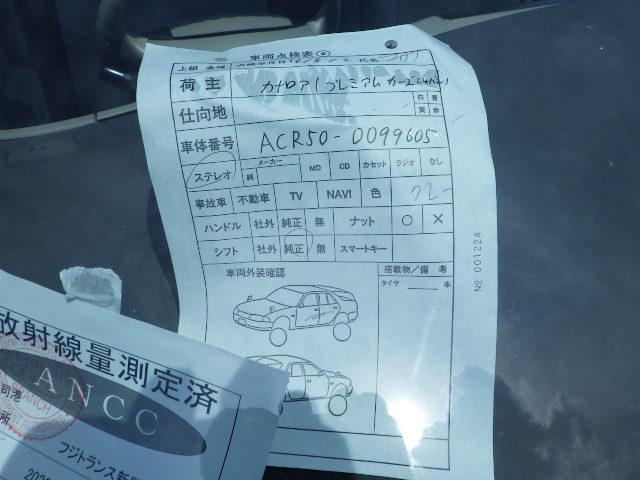 車両点検表
荷主 カトロア(プレミアム カーズジャパン)
仕向地 白 青 黄 赤
車体番号 ACR50-0099605
ステレオ メーカー 純 MD CD カセット ラジオ なし
事故車 不動車 TV NAVI 色 グレー
ハンドル 社外 純正 無 ナット ○ ×
シフト 社外 純正 無 スマートキー
車両外装確認 搭載物/備考
タイヤ 本
No 001224
放射線量測定済
ANCC
フジトランス新